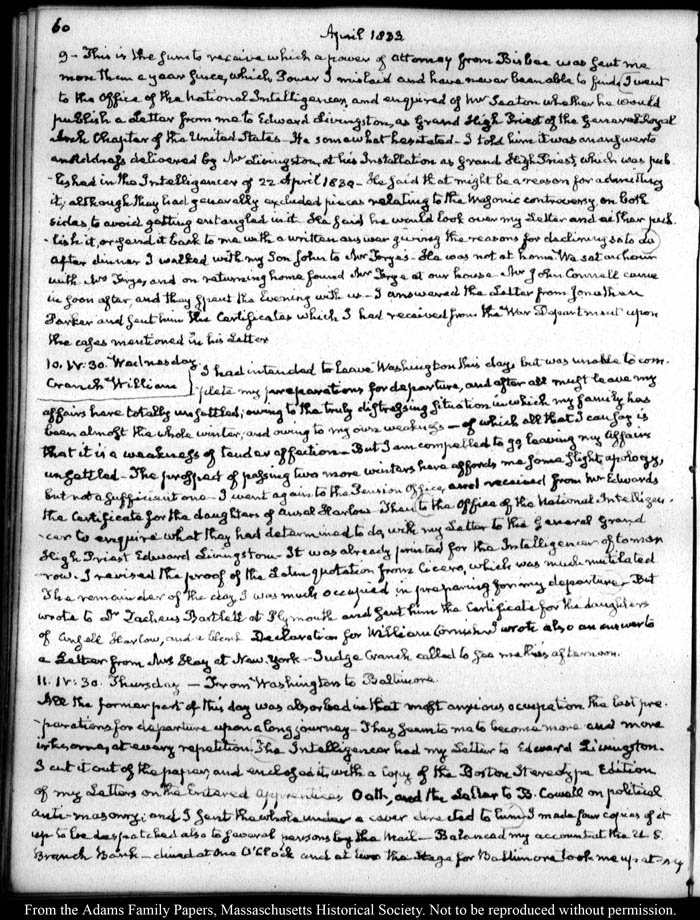 60
April 1833
9 - This is the sum to receive which a power of attorney from Bisbee was sent me
more than a year since, which Power I mislaid and have never been able to find. I went
to the Office of the National Intelligencer, and enquired of Mr Seaton whether he would
publish a Letter from me to Edward Livingston, as Grand High Priest of the General Royal
Arch Chapter of the United States - He somewhat hesitated - I told him it was an answer to
an Address delivered by Mr Livingston, at his Installation as Grand High Priest, which was pub-
-lished in the Intelligencer of 22 April 1830 - He said that might be a reason for admitting
it, although they had generally excluded pieces relating to the Masonic controversy, on both
sides to avoid getting entangled in it. He said he would look over my Letter and either pub-
-lish it, or send it back to me with a written answer giving the reasons for declining so to do
After dinner I walked with my Son John to Mr Frye's - He was not at home. We sat an hour
with Mrs Frye, and on returning home found Mr Frye at our house - Mr John Connell came
in soon after, and they spent the Evening with us - I answered the Letter from Jonathan
Parker and sent him the Certificates which I had received from the War Department upon
the cases mentioned in his Letter
10. IV:30. Wednesday
Cranch William
I had intended to leave Washington this day, but was unable to com-
-plete my preparations for departure, and after all must leave my
affairs here totally unsettled; owing to the truly distressing situation in which my family has
been almost the whole winter, and owing to my own weakness - of which all that I can say is
that it is a weakness of tender affection - But I am compelled to go leaving my Affairs
unsettled - The prospect of passing two more winters here affords me some slight apology,
but not a sufficient one - I went again to the Pension Office, and received from Mr Edwards
the Certificate for the daughters of Ansel Harlow. Then to the Office of the National Intelligen-
-cer to enquire what they had determined to do, with my Letter to the General Grand
High Priest Edward Livingston - It was already printed for the Intelligencer of tomor-
row. I revised the proof of the Latin quotation from Cicero, which was much mutilated
The remainder of the day I was much occupied in preparing for my departure - But
wrote to Dr Zacheus Bartlett at Plymouth and sent him the Certificate for the daughters
of Ansell Harlow, and a blank Declaration for William Cornish. I wrote also an answer to
a Letter from Mrs Hay at New-York - Judge Cranch called to see me this afternoon.
11. IV:30. Thursday - From Washington to Baltimore.
All the former part of this day was absorbed in that most anxious occupation the last pre-
-parations for departure upon a long journey - They seem to me to become more and more
irksome, at every repetition. The Intelligencer had my Letter to Edward Livingston.
I cut it out of the paper, and enclosed it, with a Copy of the Boston Stereotype Edition
of my Letters on the Entered Apprentices Oath, and the Letter to B. Cowell on political
Anti-masonry; and I sent the whole under a cover directed to him. I made four copies of it
up to be despatched also to several persons by the Mail - Balanced my account at the U.S.
Branch Bank - dined at One O'Clock and at two the Stage for Baltimore took me up at my
From the Adams Family Papers, Massachusetts Historical Society. Not to be reproduced without permission.